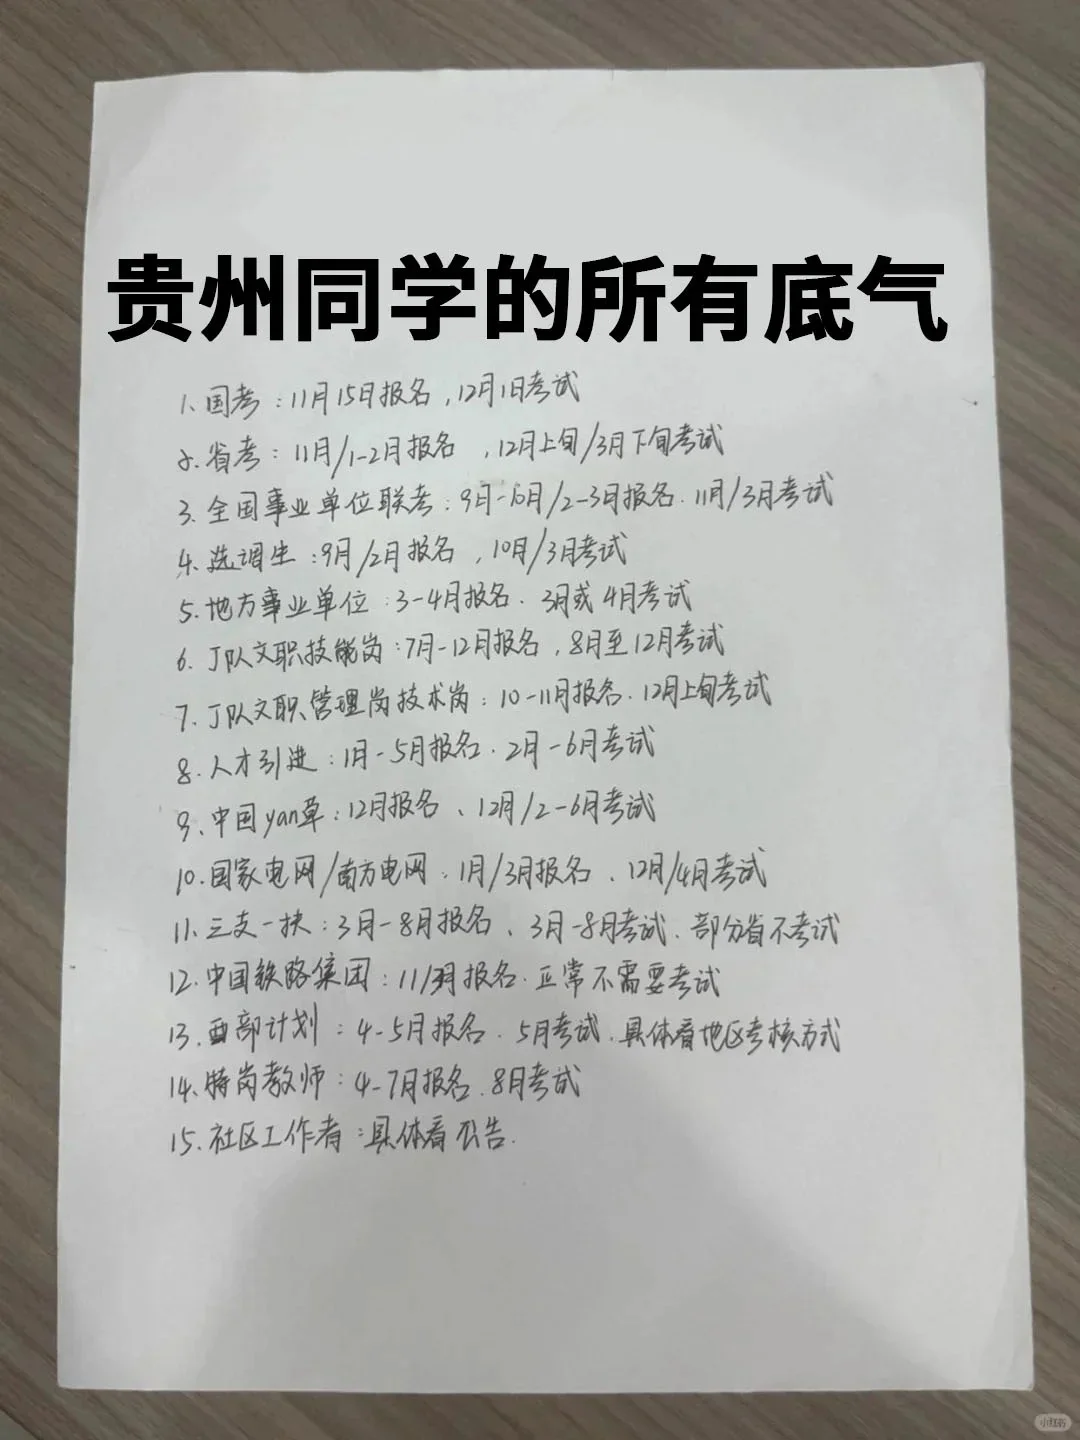 贵州同学的所有底气
1、国考：11月15日报名，12月1日考试
2、省考：11月/1-2月报名，12月上旬/3月下旬考试
3、全国事业单位联考：9月-10月/2-3月报名、11月/3月考试
4、选调生：9月/2月报名，10月/3月考试
5、地方事业单位：3-4月报名、3月或4月考试
6、J队文职技能岗：7月-12月报名，8月至12月考试
7、J队文职管理岗技术岗：10-11月报名、12月上旬考试
8、人才引进：1月-5月报名、2月-6月考试
9、中国yan草：12月报名、12月/2-6月考试
10、国家电网/南方电网：1月/3月报名、12月/4月考试
11、三支一扶：3月-8月报名、3月-8月考试、部分省不考试
12、中国铁路集团：11/3月报名、正常不需要考试
13、西部计划：4-5月报名、5月考试、具体看地区考核方式
14、特岗教师：4-7月报名、8月考试
15、社区工作者：具体看公告.
小红书